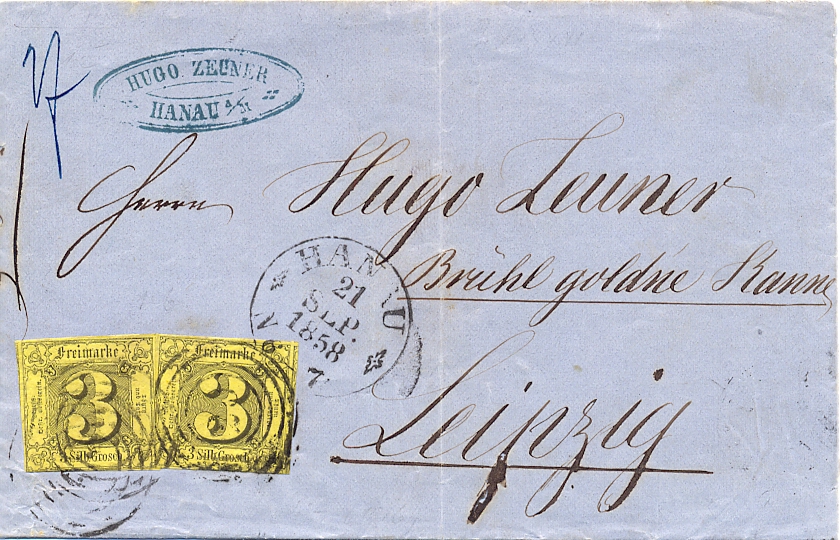 HUGO ZEUNER
HANAU a/M
Herrn Hugo Zeuner
Brühl goldne Kanne
Leipzig
HANAU
21
SEP.
1858
Freimarke
3
3 Silb. Grosch.
Freimarke
3
3 Silb. Grosch.